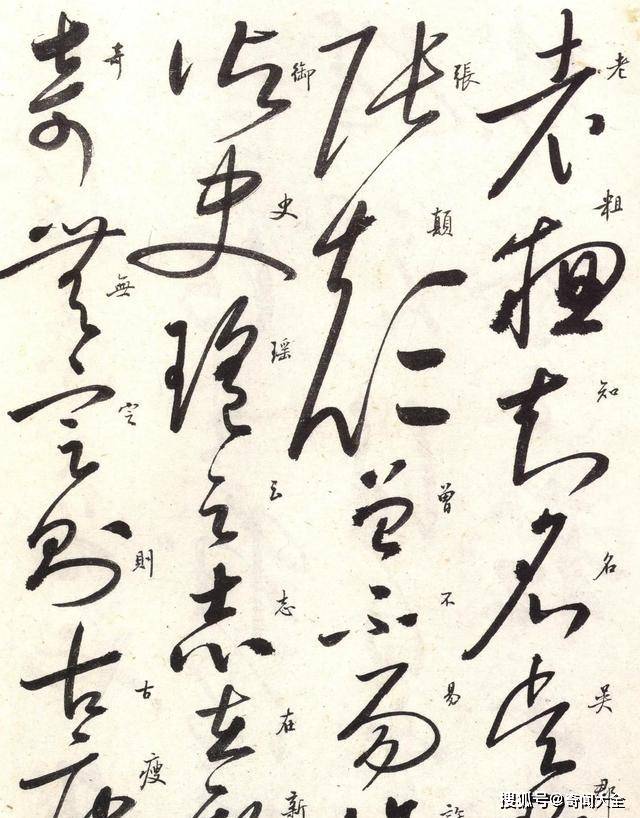 老粗知名吳郡
張顛曾不易許
御史瑶云志在新
奇無定則古瘦
搜狐号@奇闻大全